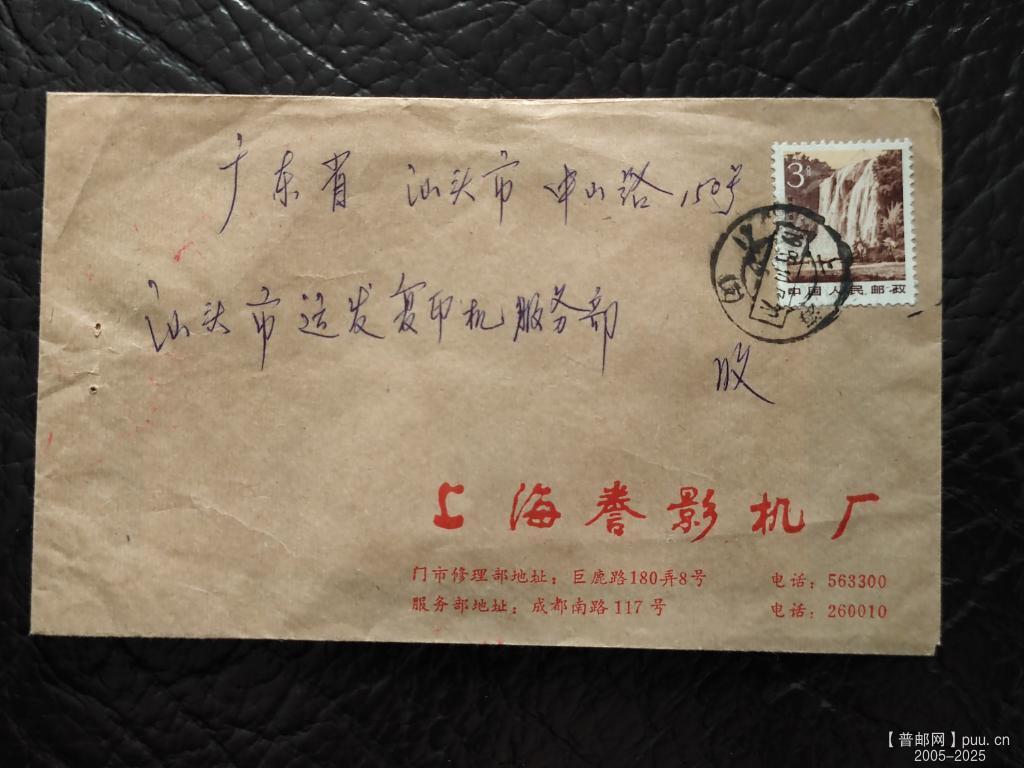 广东省 汕头市 中山路150号
汕头市运发复印机服务部
收
3分
中国人民邮政
上海
上海誊影机厂
门市修理部地址：巨鹿路180弄8号 电话：563300
服务部地址：成都南路117号 电话：260010
【普邮网】puu.cn
2005-2025